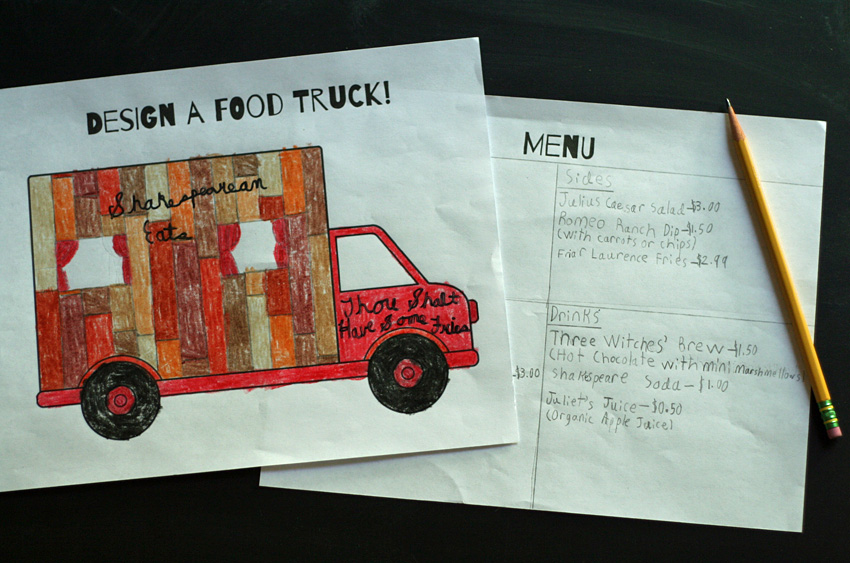 DESIGN A FOOD TRUCK!
Shakespearean
Eats
Thou Shalt
Have Some Fries
MENU
Sides
Julius Caesar Salad—$3.00
Romeo Ranch Dip—$1.50
(with carrots or chips)
Friar Laurence Fries—$2.99
—$3.00
Drinks
Three Witches' Brew—$1.50
(Hot Chocolate with mini marshmellows)
Shakespeare Soda—$1.00
Juliet's Juice—$0.50
(Organic Apple Juice)